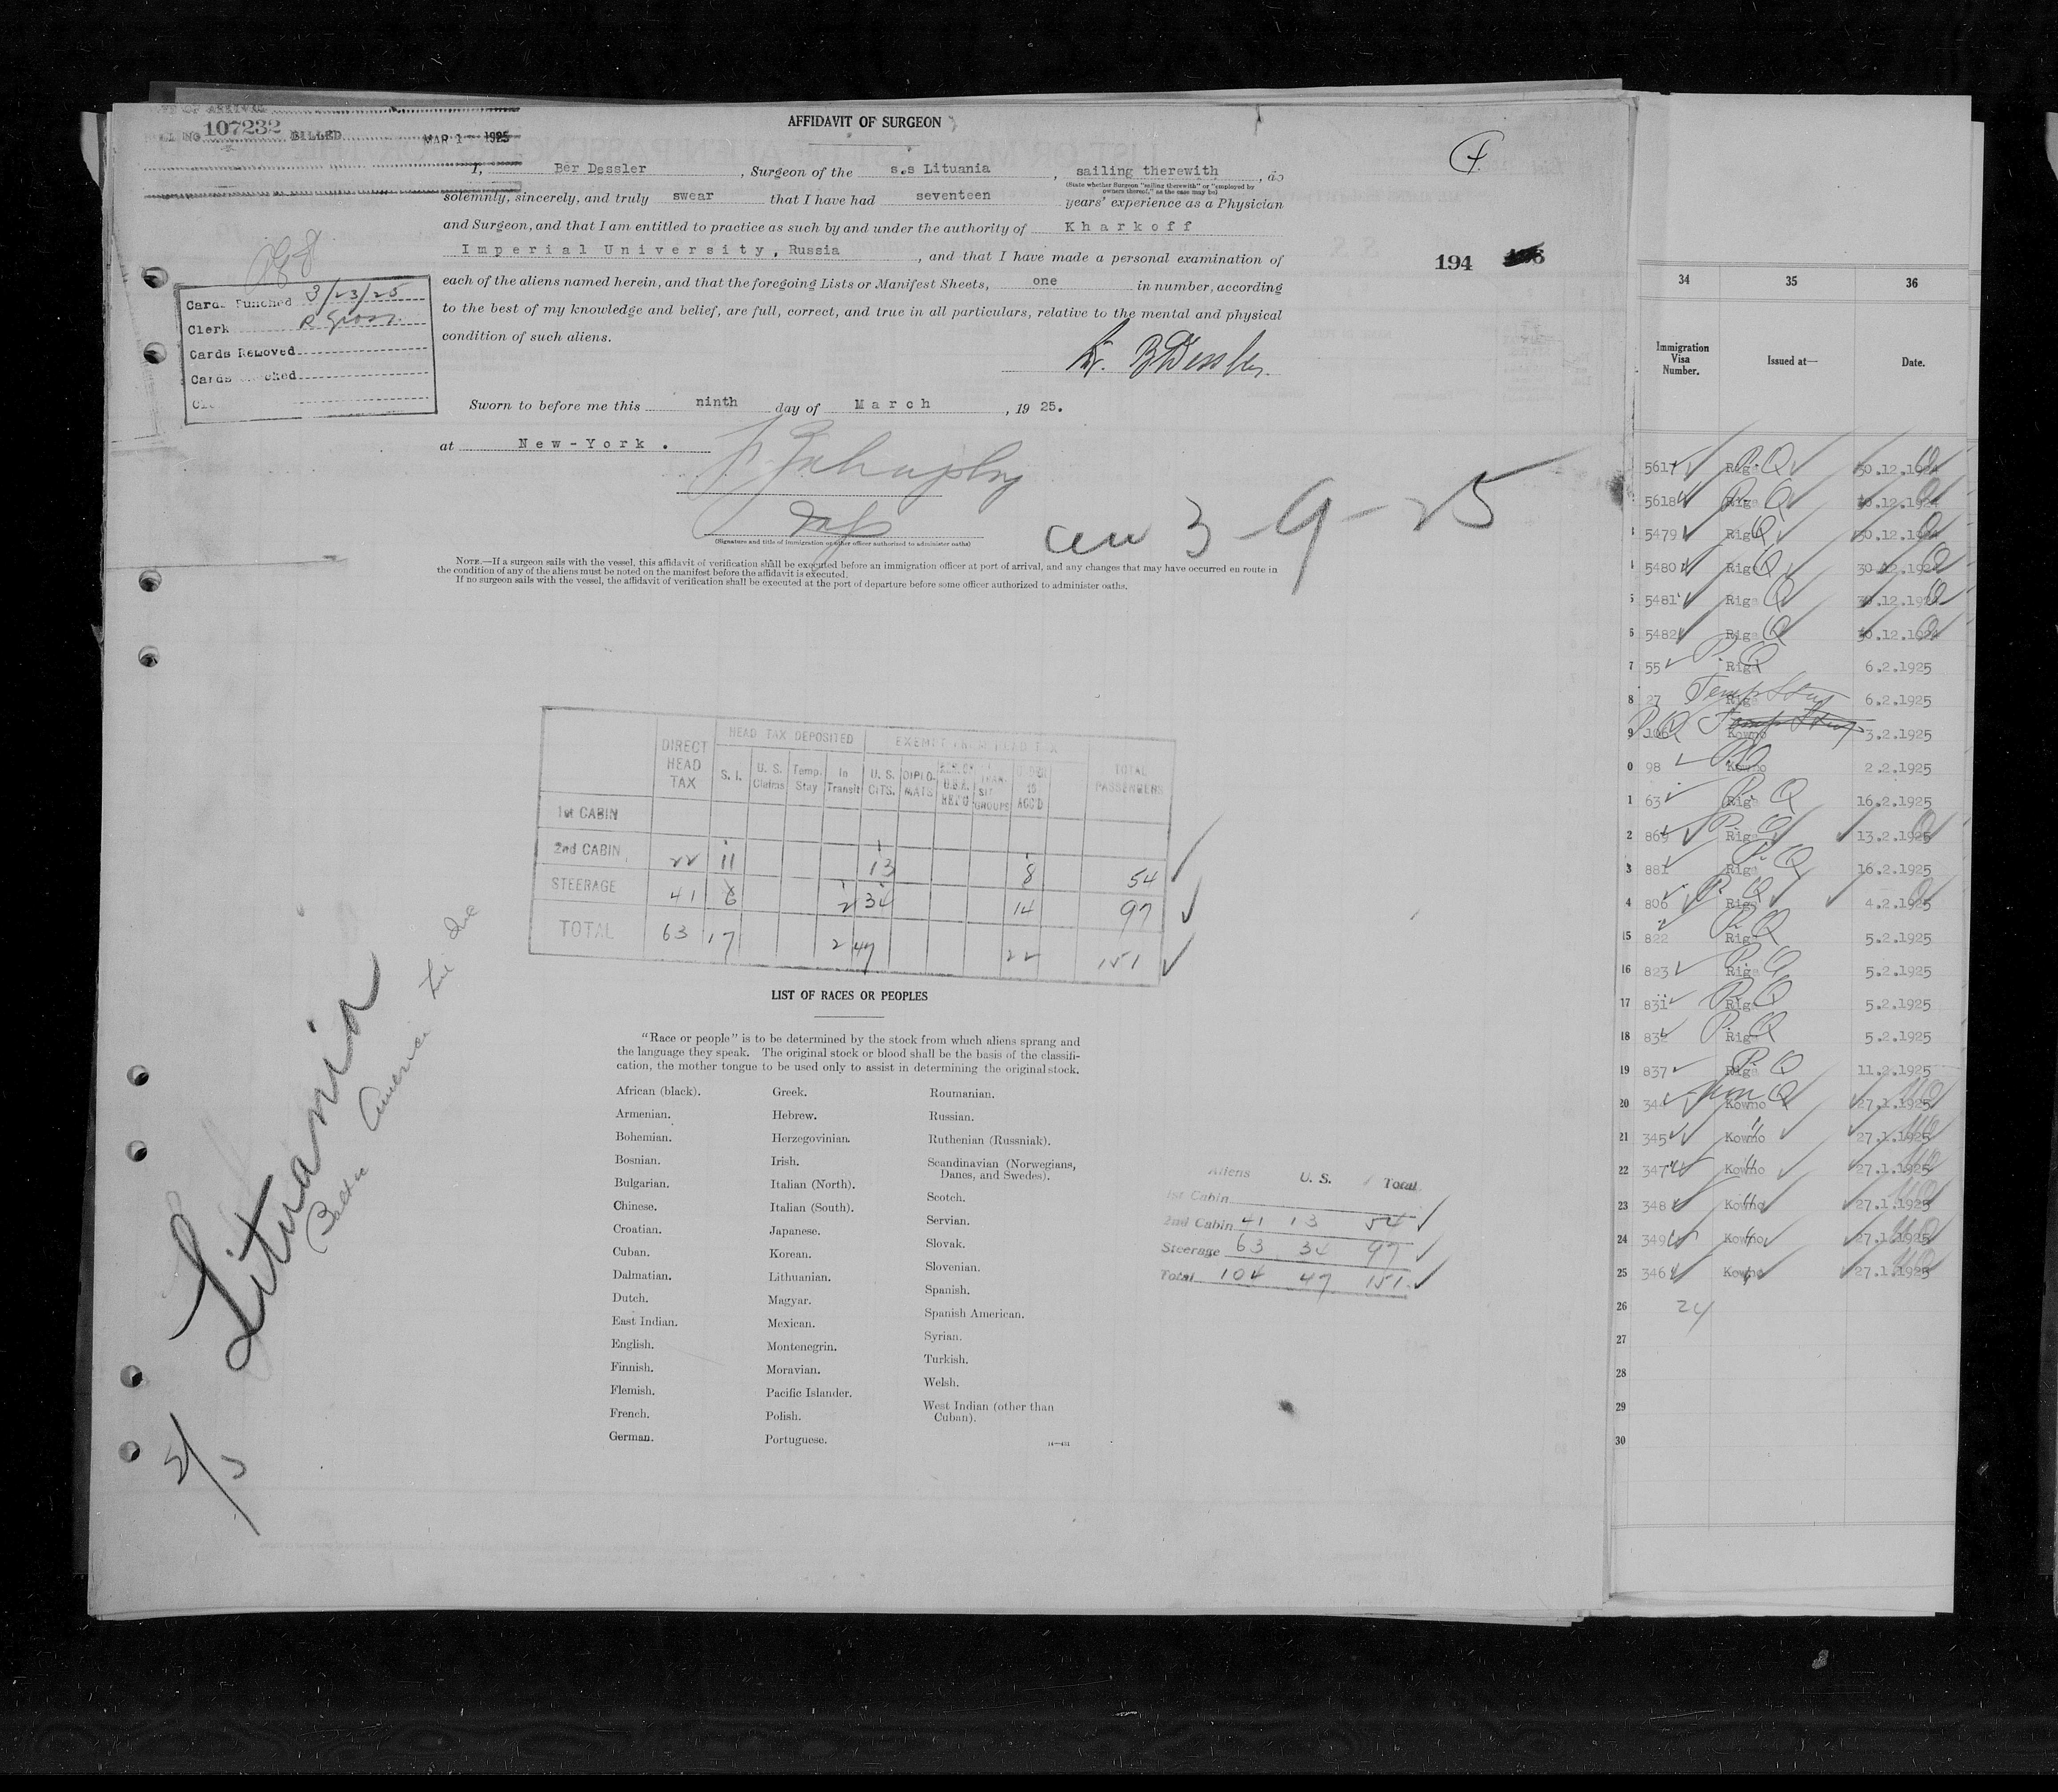 107232 BILLED MAR 1 1925
AFFIDAVIT OF SURGEON
I, Ber Dessler, Surgeon of the s.s Lituania, sailing therewith, do
(State whether Surgeon "sailing therewith" or "employed by
owners thereof," as the case may be)
solemnly, sincerely, and truly swear that I have had seventeen years' experience as a Physician
and Surgeon, and that I am entitled to practice as such by and under the authority of Kharkoff
Imperial University, Russia, and that I have made a personal examination of
each of the aliens named herein, and that the foregoing Lists or Manifest Sheets, one in number, according
to the best of my knowledge and belief, are full, correct, and true in all particulars, relative to the mental and physical
condition of such aliens.
194
Cards Punched 3/23/25
Clerk R Gross
Cards Removed
Cards
Dr. B Dessler.
Sworn to before me this ninth day of March, 1925.
at New-York.
3-9-25
(Signature and title of immigration or other officer authorized to administer oaths)
NOTE.—If a surgeon sails with the vessel, this affidavit of verification shall be executed before an immigration officer at port of arrival, and any changes that may have occurred en route in
the condition of any of the aliens must be noted on the manifest before the affidavit is executed.
If no surgeon sails with the vessel, the affidavit of verification shall be executed at the port of departure before some officer authorized to administer oaths.
HEAD TAX DEPOSITED EXEMPT FROM HEAD TAX
DIRECT HEAD TAX S. I. U. S. Claims Temp. Stay In Transit U. S. CITS. DIPLO-MATS TOTAL PASSENGERS
1st CABIN
2nd CABIN 22 11 13 8 54
STEERAGE 41 6 2 34 14 97
TOTAL 63 17 2 47 22 151
Lituania
Baltic America Line
LIST OF RACES OR PEOPLES
"Race or people" is to be determined by the stock from which aliens sprang and
the language they speak. The original stock or blood shall be the basis of the classifi-
cation, the mother tongue to be used only to assist in determining the original stock.
African (black).
Armenian.
Bohemian.
Bosnian.
Bulgarian.
Chinese.
Croatian.
Cuban.
Dalmatian.
Dutch.
East Indian.
English.
Finnish.
Flemish.
French.
German.
Greek.
Hebrew.
Herzegovinian.
Irish.
Italian (North).
Italian (South).
Japanese.
Korean.
Lithuanian.
Magyar.
Mexican.
Montenegrin.
Moravian.
Pacific Islander.
Polish.
Portuguese.
Roumanian.
Russian.
Ruthenian (Russniak).
Scandinavian (Norwegians,
Danes, and Swedes).
Scotch.
Servian.
Slovak.
Slovenian.
Spanish.
Spanish American.
Syrian.
Turkish.
Welsh.
West Indian (other than
Cuban).
Aliens U. S. Total
1st Cabin
2nd Cabin 41 13 54
Steerage 63 34 97
Total 104 47 151
34 35 36
Immigration Visa Number. Issued at— Date.
5617 Riga 30.12.1924
5618 Riga 30.12.1924
5479 Riga 30.12.1924
5480 Riga 30.12.1924
5 5481 Riga Q 30.12.1924
6 5482 Riga Q 30.12.1924
7 55 Riga 6.2.1925
8 27 Temp Stay Riga 6.2.1925
9 106 Kowno 3.2.1925
0 98 Kowno 2.2.1925
1 63 Riga 16.2.1925
2 869 Riga 13.2.1925
3 881 Riga 16.2.1925
4 806 Riga 4.2.1925
15 822 Riga 5.2.1925
16 823 Riga 5.2.1925
17 831 Riga 5.2.1925
18 832 Riga 5.2.1925
19 837 Riga 11.2.1925
20 344 Kowno 27.1.1925
21 345 Kowno 27.1.1925
22 347 Kowno 27.1.1925
23 348 Kowno 27.1.1925
24 349 Kowno 27.1.1925
25 346 Kowno 27.1.1925
26 24
27
28
29
30